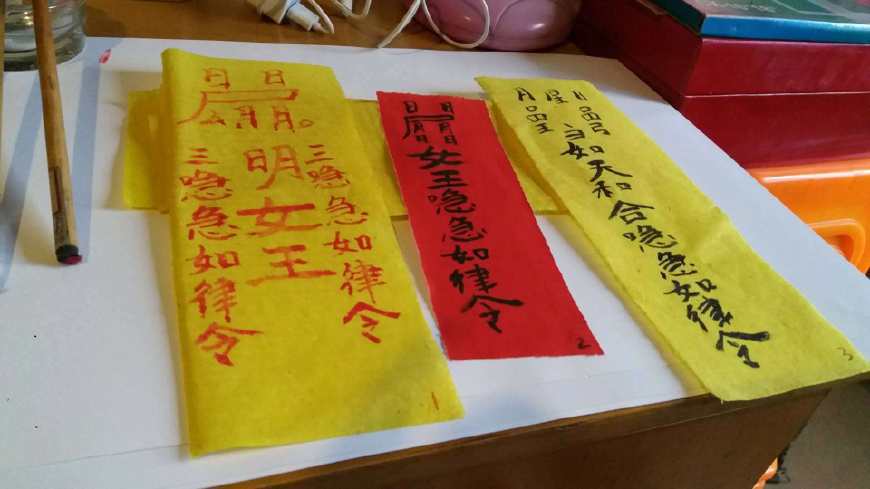 日 日
三喼急如律令
明女王
三喼急如律令
1
日 日
女王喼急如律令
2
如天和合喼急如律令
3